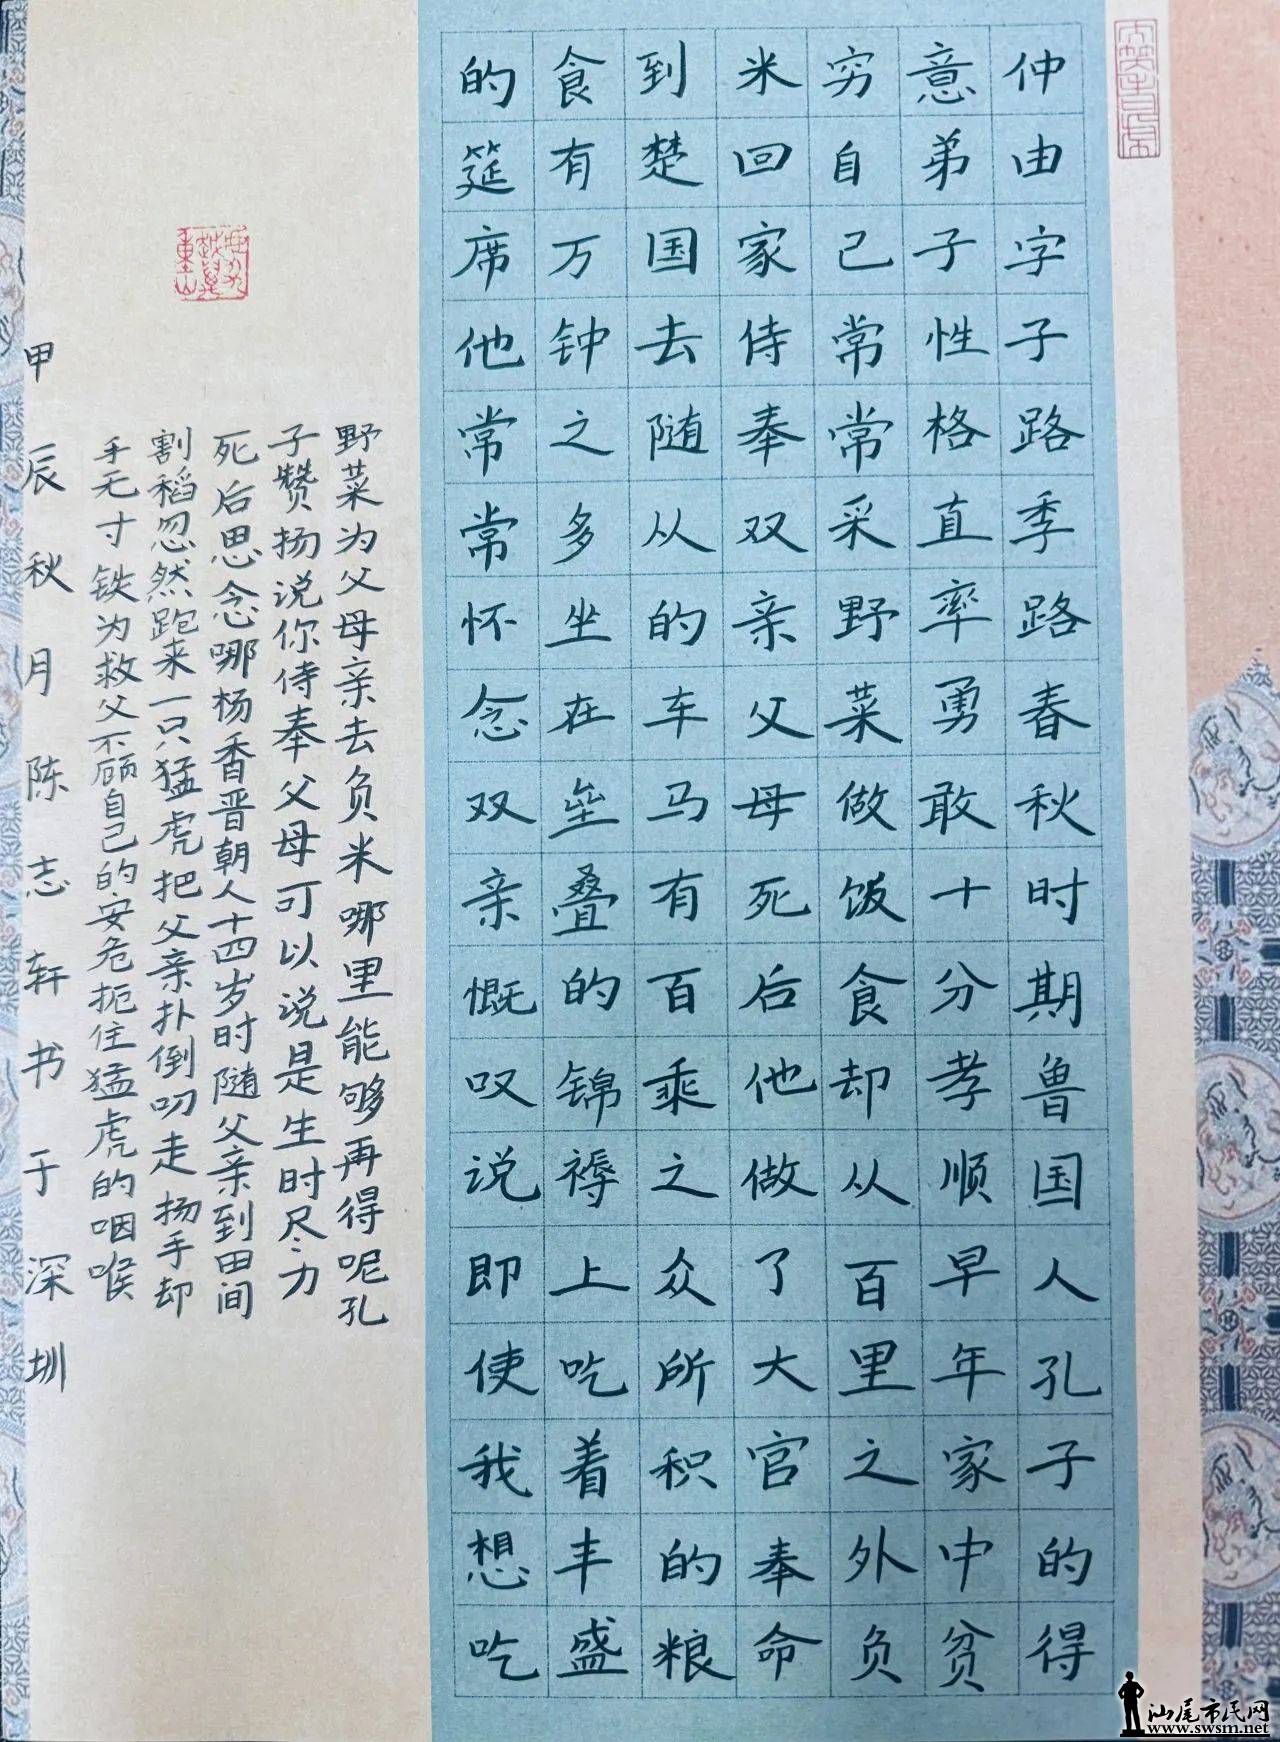 仲由字子路季路春秋时期鲁国人孔子的得
意弟子性格直率勇敢十分孝顺早年家中贫
穷自己常常采野菜做饭食却从百里之外负
米回家侍奉双亲父母死后他做了大官奉命
到楚国去随从的车马有百乘之众所积的粮
食有万钟之多坐在垒叠的锦褥上吃着丰盛
的筵席他常常怀念双亲慨叹说即使我想吃
野菜为父母亲去负米哪里能够再得呢孔
子赞扬说你侍奉父母可以说是生时尽力
死后思念哪杨香晋朝人十四岁时随父亲到田间
割稻忽然跑来一只猛虎把父亲扑倒叨走扬手却
手无寸铁为救父不顾自己的安危扼住猛虎的咽喉
甲辰秋月陈志轩书于深圳
汕尾市民网
www.swsm.net